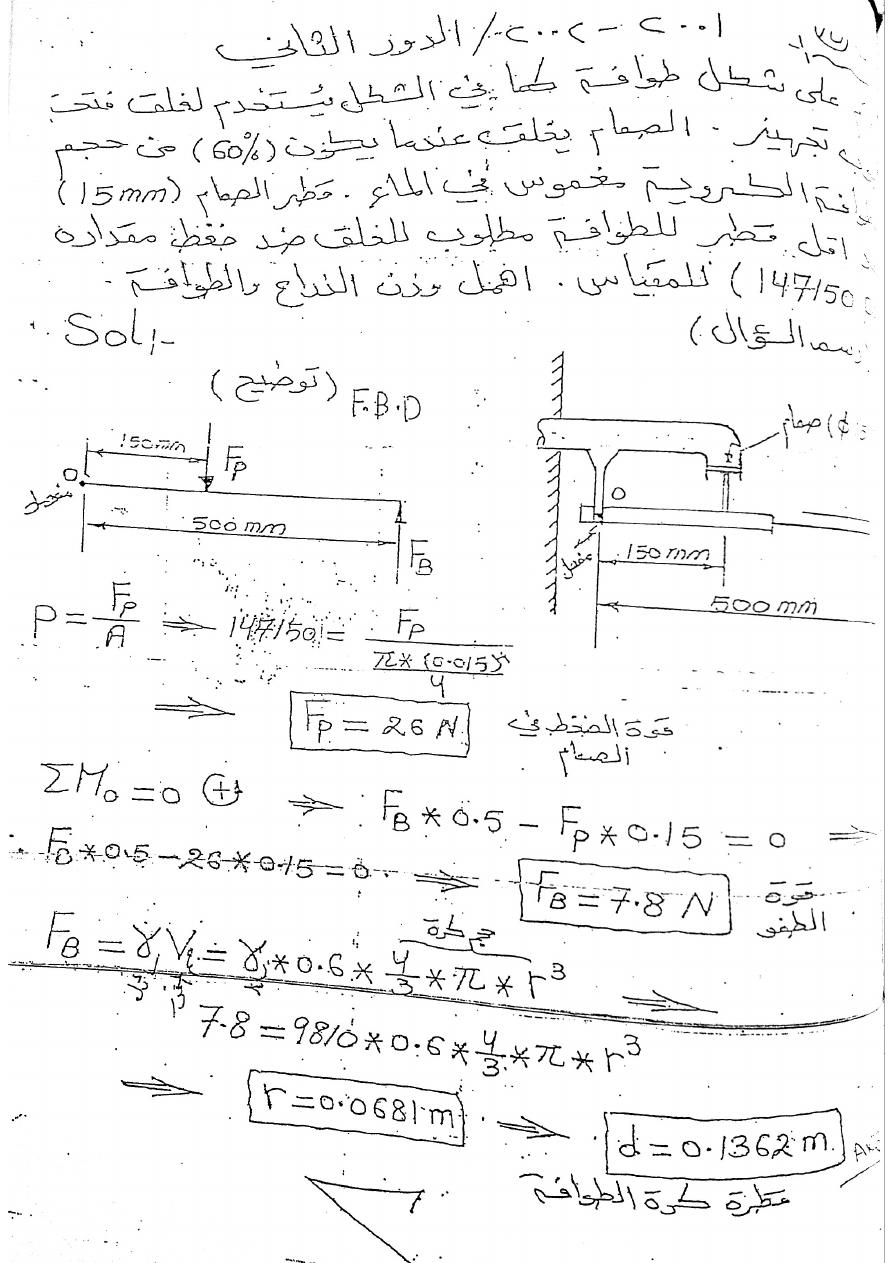 ٢٠٠١ - ٢٠٠٢ / الدور الثاني
على شكل طوافة كما في الشكل يُستخدم لغلق فتحة
تجهيز . الصمام يغلق عندما يكون (60%) من حجم
الكروية مغموس في المائع . قطر الصمام (15mm)
اقل قطر للطوافة مطلوب للغلق ضد ضغط مقداره
147150 ) للمقياس . اهمل وزن الذراع والطوافة .
السؤال )
Sol:-
(توضيح) F.B.D
150mm
Fp
O
مفصل
500 mm
FB
صمام
O
مفصل
150mm
500mm
P = Fp/A ⇒ 147150 = Fp/(π*(0.015)²/4)
⇒ Fp = 26 N قوة الضغط في
الصمام
ΣMo = 0 ⇒ FB * 0.5 - Fp * 0.15 = 0 ⇒
FB * 0.5 - 26 * 0.15 = 0 ⇒ FB = 7.8 N قوة
الطفو
حجم كرة
FB = γ V = γ * 0.6 * 4/3 * π * r³ ⇒
7.8 = 9810 * 0.6 * 4/3 * π * r³
⇒ r = 0.0681 m ⇒ d = 0.1362 m
كرة الطوافة